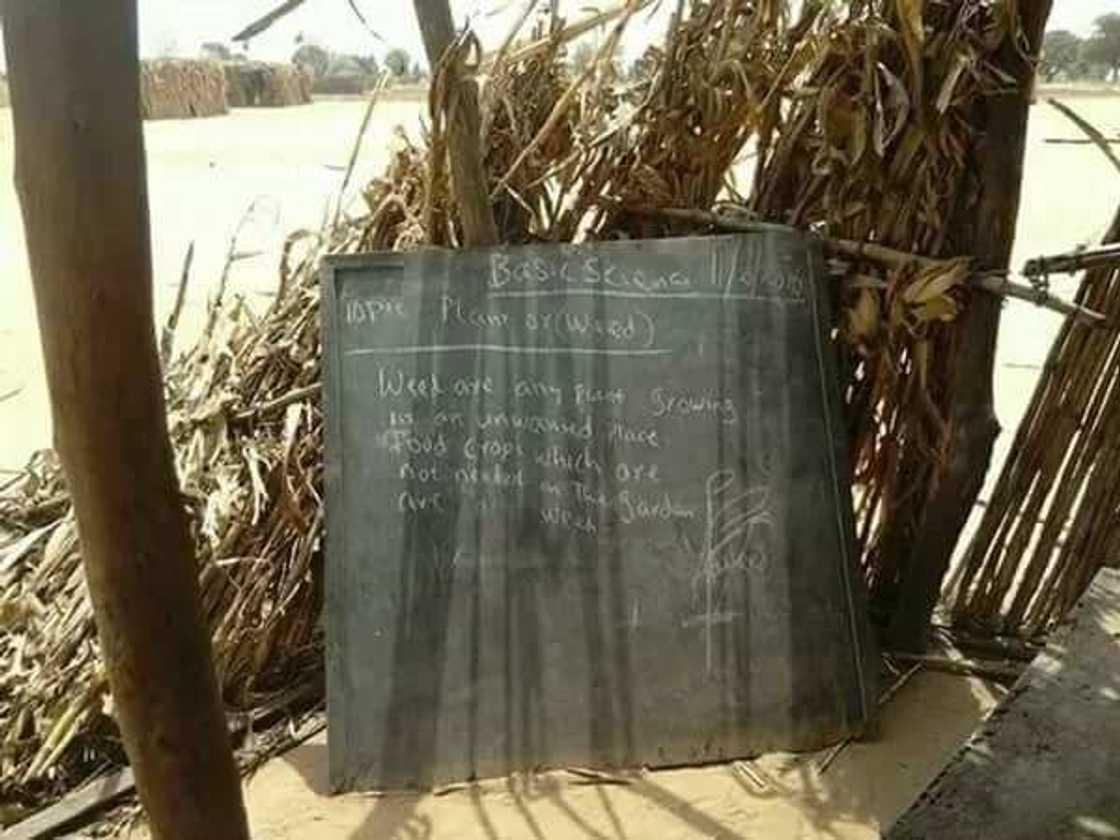 Basic Science
Topic Plant or (Weed)
Weed are any plant growing
in an unwanted place
Food crops which are
not needed in the garden
are weed